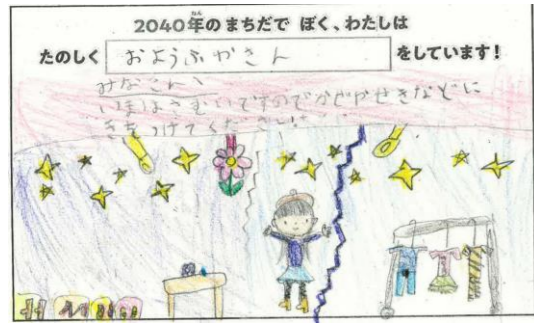 2040年のまちだで ぼく、わたしは
たのしく おようふかさん をしています!
みなさん、
いまはさむいですのでかぜやせきなどに
きをつけてください!